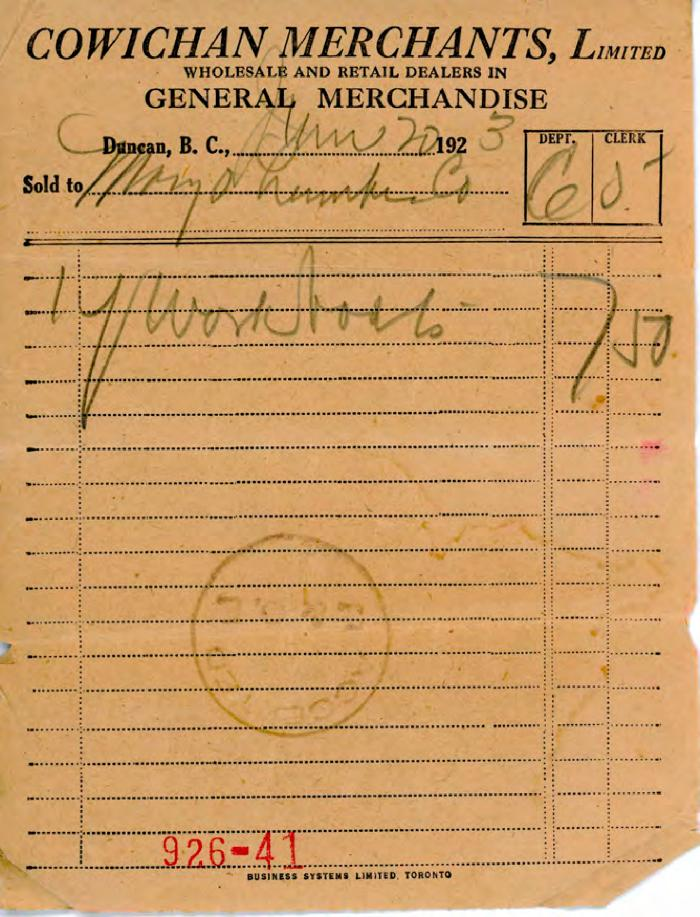 COWICHAN MERCHANTS, LIMITED
WHOLESALE AND RETAIL DEALERS IN
GENERAL MERCHANDISE
Duncan, B. C., 20 192 3
DEPT. CLERK
6 5
Sold to Mayo Lumber Co
1 Work Boots 7 50
926-41
BUSINESS SYSTEMS LIMITED, TORONTO